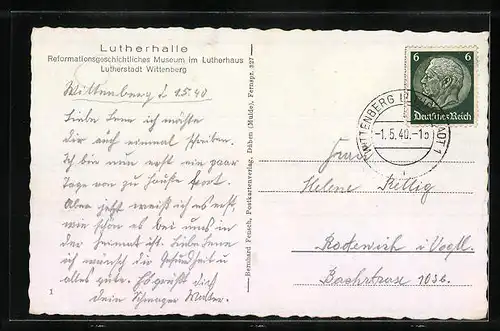 Lutherhalle
Reformationsgeschichtliches Museum im Lutherhaus
Lutherstadt Wittenberg
Wittenberg d 1.5.40
Liebe Lene ich möchte
dir auch einmal schreiben.
Ich bin nun erst ein paar
Tage von zu Hause fort.
Aber jetzt weiß ich es erst,
wie schön es bei uns in
der Heimat ist. Liebe Lene
ich wünsch dir Gesundheit u
alles gute. Es grüßt dich
dein Schwager Walter.
1
Bernhard Fritsch, Postkartenverlag, Düben (Mulde), Fernspr. 327
6 6
Deutsches Reich
WITTENBERG
-1.5.40.-18
Frau
Helene Rettig
Rodewisch i. Vogtl.
Bachstrase 103b.